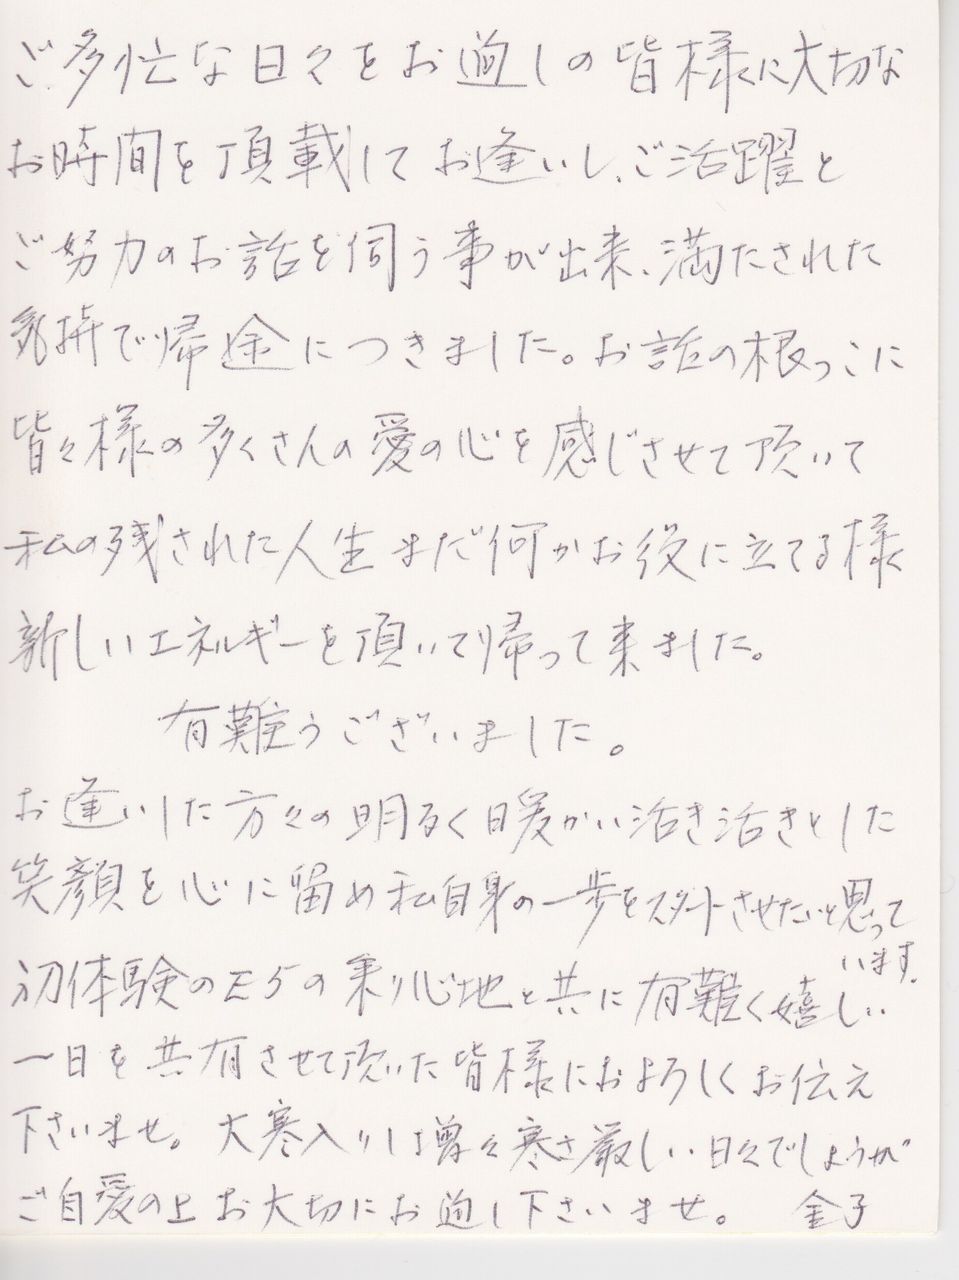 ご多忙な日々をお過しの皆様に大切な
お時間を頂載してお逢いし、ご活躍と
ご努力のお話を伺う事が出来、満たされた
気持で帰途につきました。お話の根っこに
皆々様の多くさんの愛の心を感じさせて頂いて
私の残された人生まだ何かお役に立てる様
新しいエネルギーを頂いて帰って来ました。
有難うございました。
お逢いした方々の明るく暖かい活き活きとした
笑顔を心に留め私自身の一歩をスタートさせたいと思って
います。
初体験のE5の乗り心地と共に有難く嬉しい
一日を共有させて頂いた皆様におよろしくお伝え
下さいませ。大寒入りは増々寒さ厳しい日々でしょうが
ご自愛の上お大切にお過し下さいませ。 金子